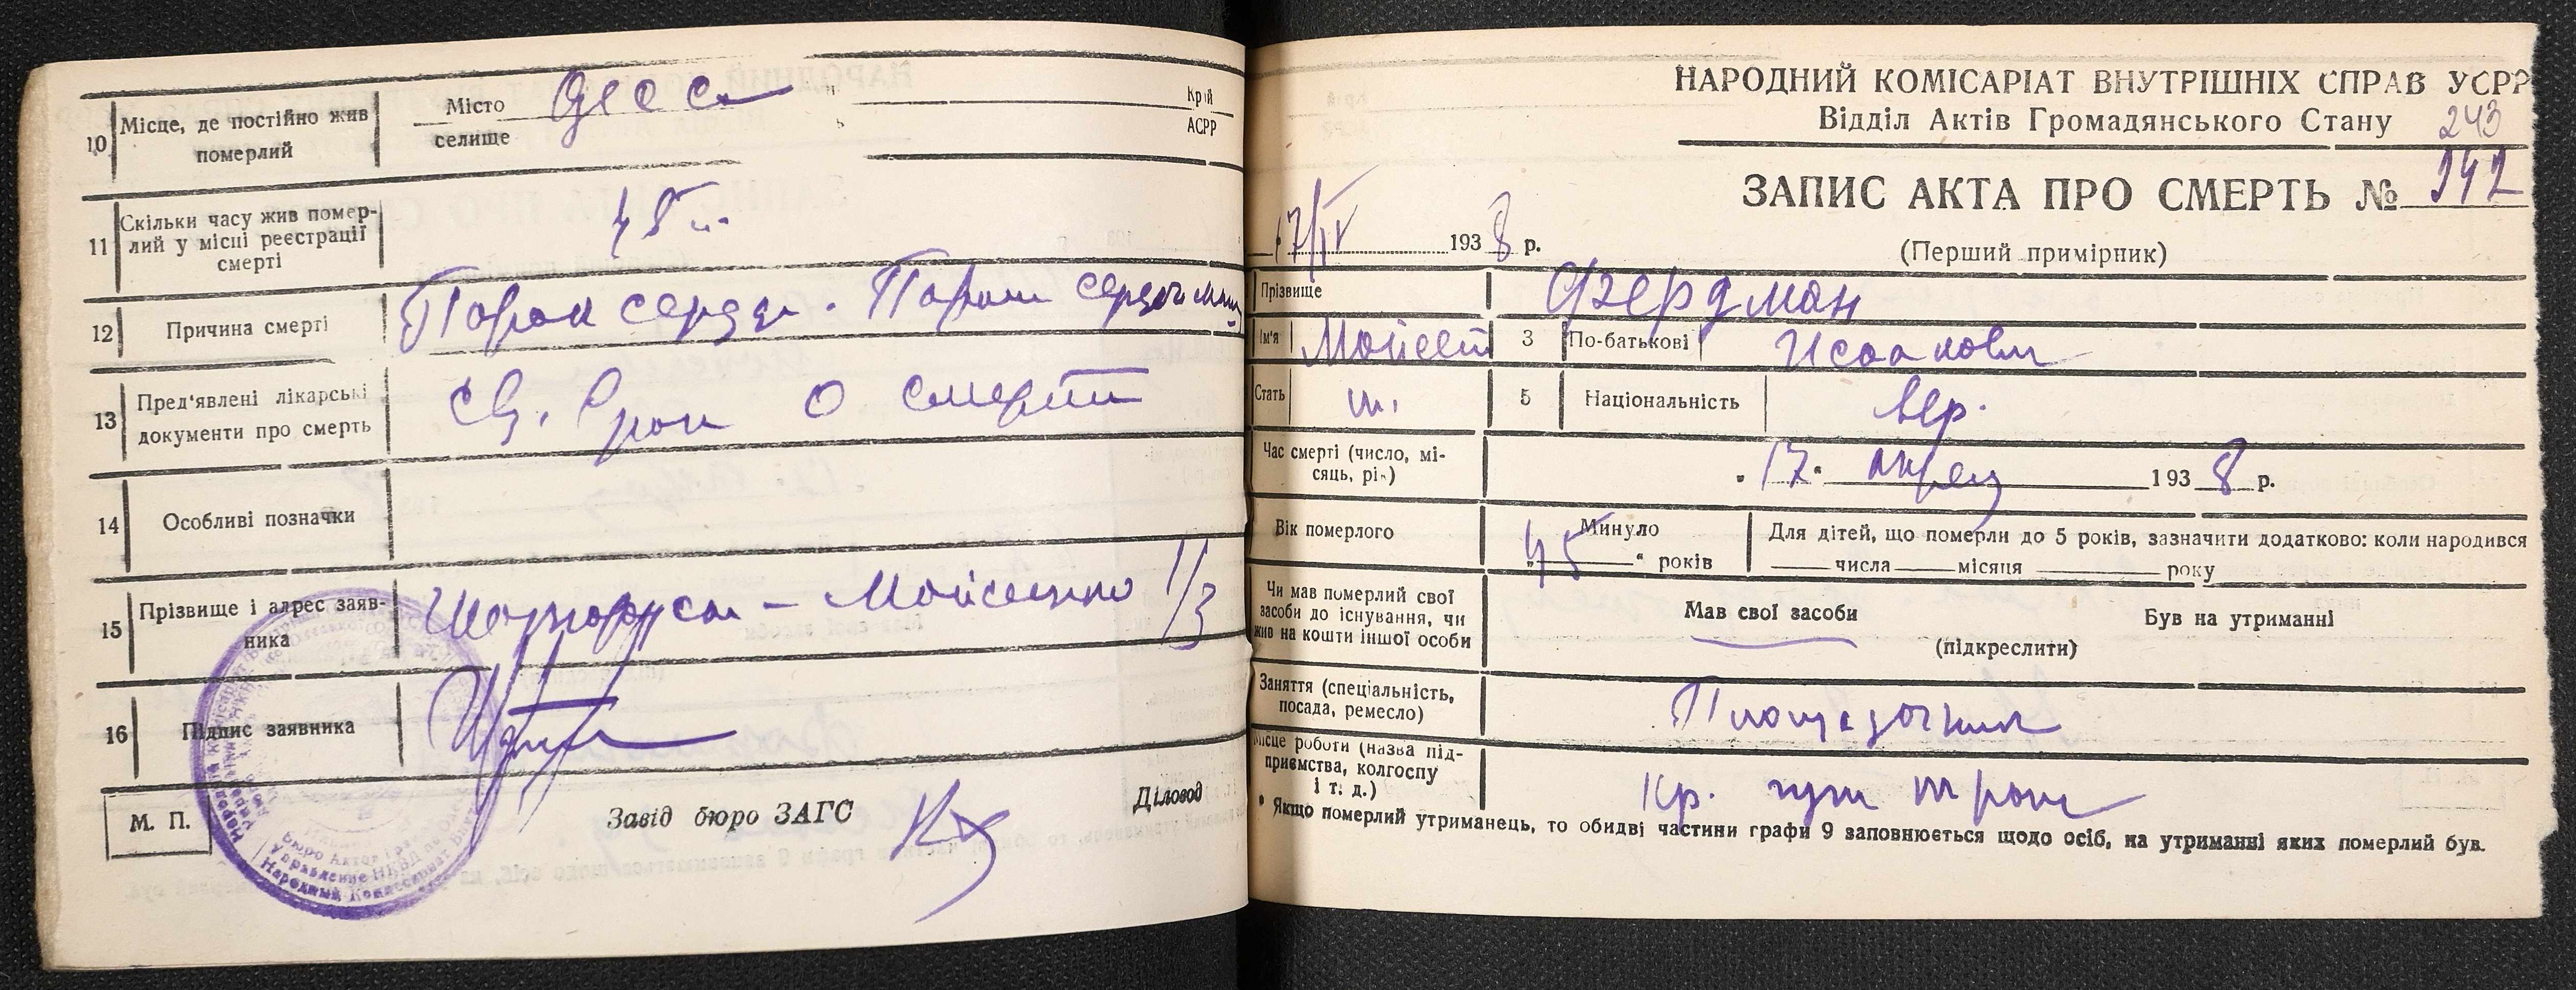 10 Місце, де постійно жив померлий
Місто селище Одесса
Край
АСРР
11 Скільки часу жив померлий у місці реєстрації смерті
45 л.
12 Причина смерті
Порок сердца. Парали сердечной
13 Пред'явлені лікарські документи про смерть
о смерти
14 Особливі позначки
15 Прізвище і адрес заявника
1/3
16 Підпис заявника
М. П.
Завід бюро ЗАГС
Діловод
НАРОДНИЙ КОМІСАРІАТ ВНУТРІШНІХ СПРАВ УСРР
Відділ Актів Громадянського Стану
243
ЗАПИС АКТА ПРО СМЕРТЬ № 242
17/IV 1938 р.
(Перший примірник)
Прізвище Фердман
Ім'я Мойсей 3 По-батькові Исаакович
Стать м. 5 Національність евр.
Час смерті (число, місяць, рік)
17 апрел 1938 р.
Вік померлого
Минуло
45 років
Для дітей, що померли до 5 років, зазначити додатково: коли народився
числа місяця року
Чи мав померлий свої засоби до існування, чи жив на кошти іншої особи
Мав свої засоби Був на утриманні
(підкреслити)
Заняття (спеціальність, посада, ремесло)
Місце роботи (назва підприємства, колгоспу і т. д.)
* Якщо померлий утриманець, то обидві частини графи 9 заповнюється щодо осіб, на утриманні яких померлий був.